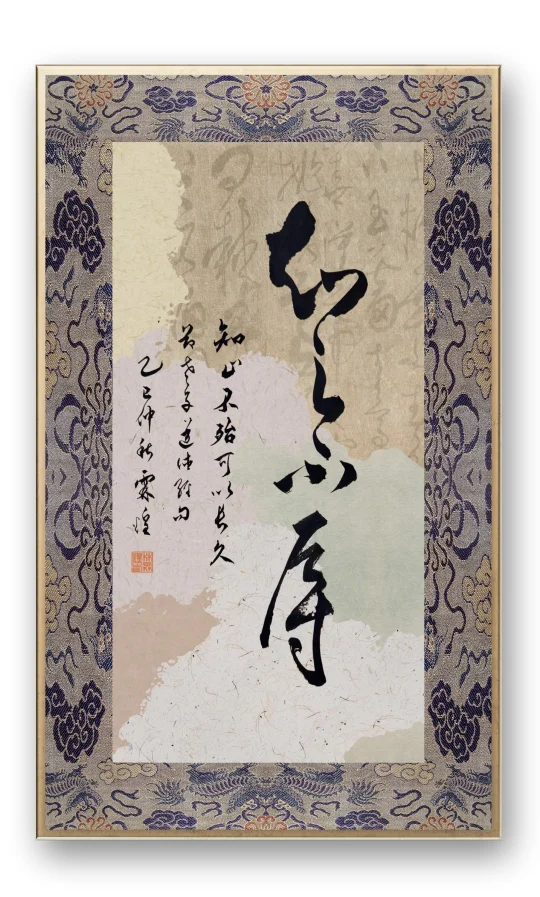 知足不辱
知止不殆可以長久
节老子道德经句
乙巳仲秋霖煌